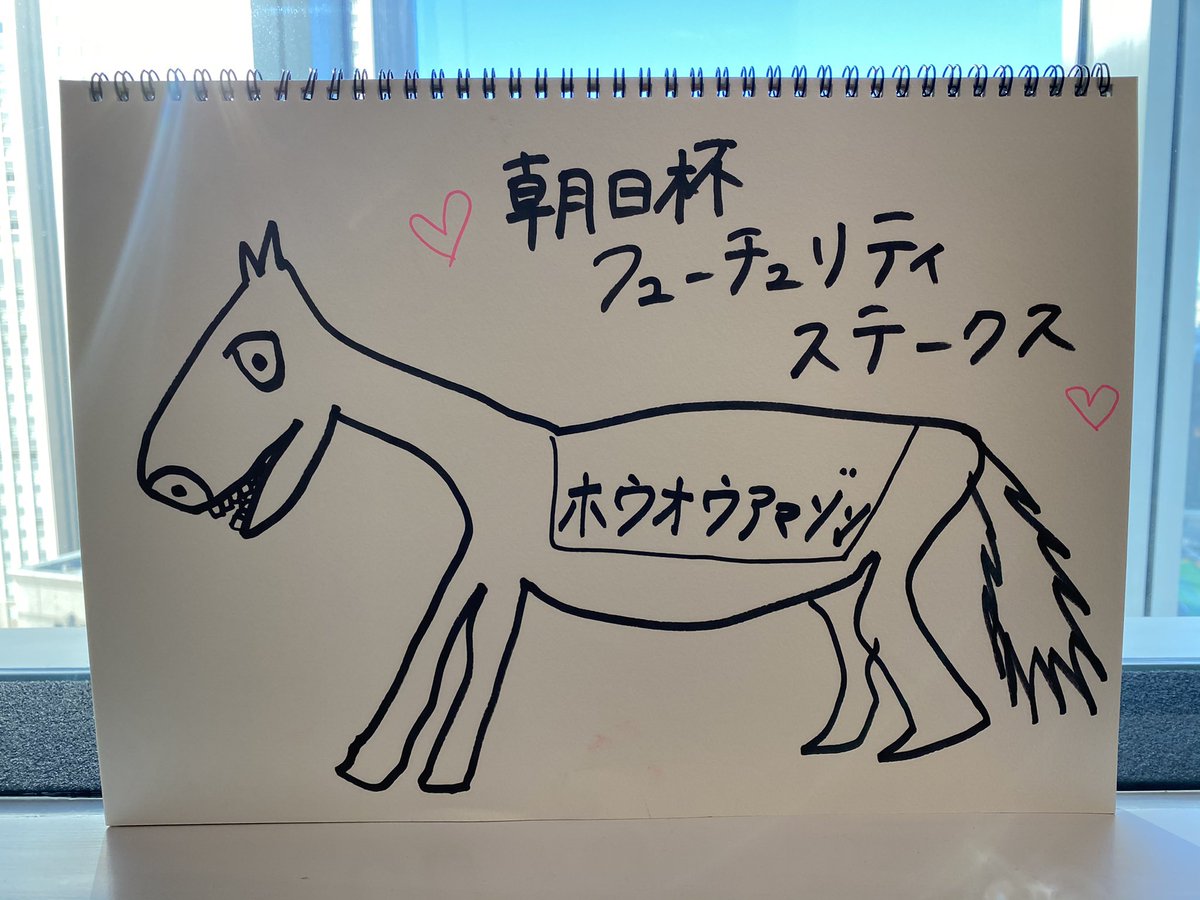 朝日杯
フューチュリティ
ステークス
ホウオウアマゾン